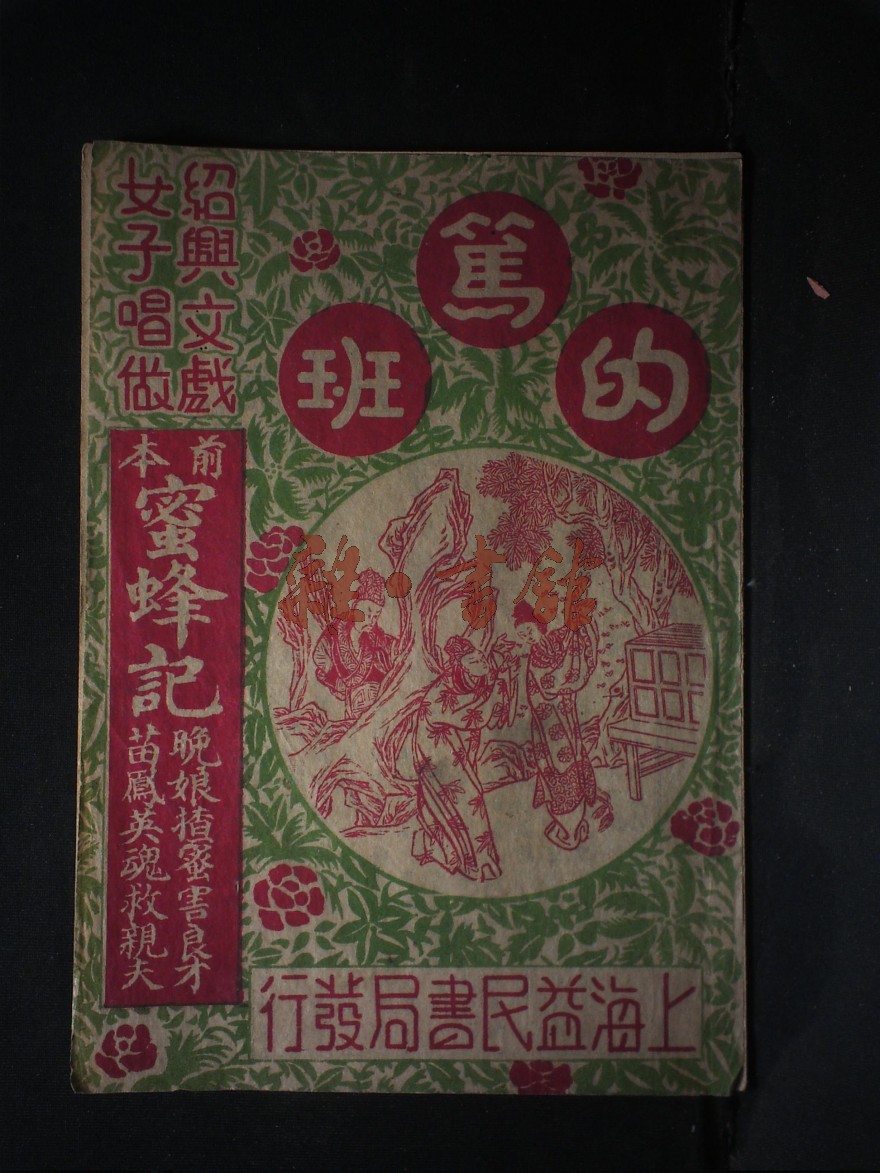 的篤班
紹興文戲
女子唱做
前本
蜜蜂記
晚娘揸蜜害良才
苗鳳英魂救親夫
上海益民書局發行
雜·書館